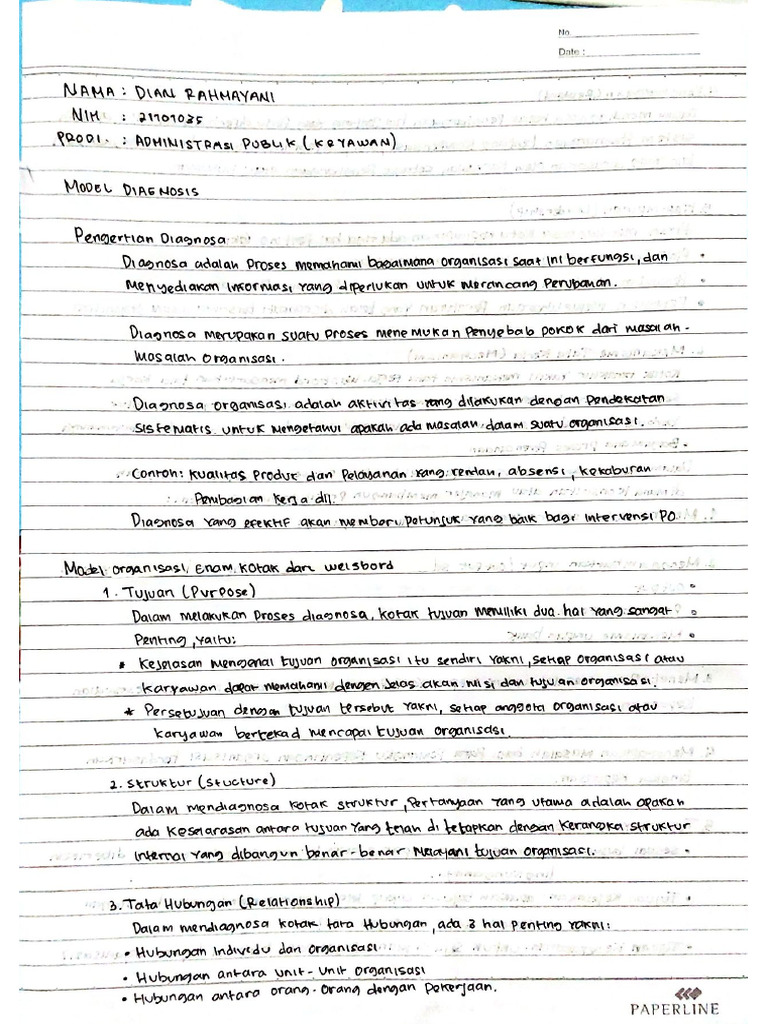 No.
Date :
NAMA : DIAN RAHMAYANI
NIM : 21101035
PRODI. : ADMINISTRASI PUBLIK (KRYAWAN)
MODEL DIAGNOSIS
Pengertian Diagnosa
Diagnosa adalah Proses memahami bagaimana organisasi saat ini berfungsi, dan
Menyediakan informasi yang diperlukan untuk merancang Perubahan.
Diagnosa merupakan suatu proses menemukan Penyebab pokok dari masalah-
masalah organisasi.
Diagnosa organisasi adalah aktivitas yang dilakukan dengan pendekatan
Sistematis untuk mengetahui apakah ada masalah dalam suatu organisasi.
Contoh: kualitas Produk dan Pelayanan yang rendah, absensi, kekaburan
Pembagian Kerja dll.
Diagnosa yang efektif akan memberi petunjuk yang baik bagi intervensi PO.
Model organisasi, Enam Kotak dari weisbord
1. Tujuan (Purpose)
Dalam melakukan Proses diagnosa, kotak tujuan memiliki dua hal yang sangat
Penting, yaitu:
* Kejelasan mengenai tujuan organisasi itu sendiri yakni, setiap organisasi atau
karyawan dapat memahami dengen jelas akan misi dan tujuan organisasi.
* Persetujuan dengan tujuan tersebut yakni, setiap anggota organisasi atau
karyawan bertekad mencapai tujuan organisasi.
2. Struktur (Stucture)
Dalam mendiagnosa kotak struktur, Pertanyaan yang utama adalah apakah
ada Keselarasan antara tujuan yang telah di tetapkan dengan Kerangka struktur
internal yang dibangun benar-benar Melayani tujuan organisasi.
3. Tata Hubungan (Relationship)
Dalam mendiagnosa kotak tata Hubungan, ada 3 hal penting yakni:
• Hubungan Individu dan organisasi
• Hubungan antara unit-unit organisasi
• Hubungan antara orang-orang dengan Pekerjaan.
PAPERLINE